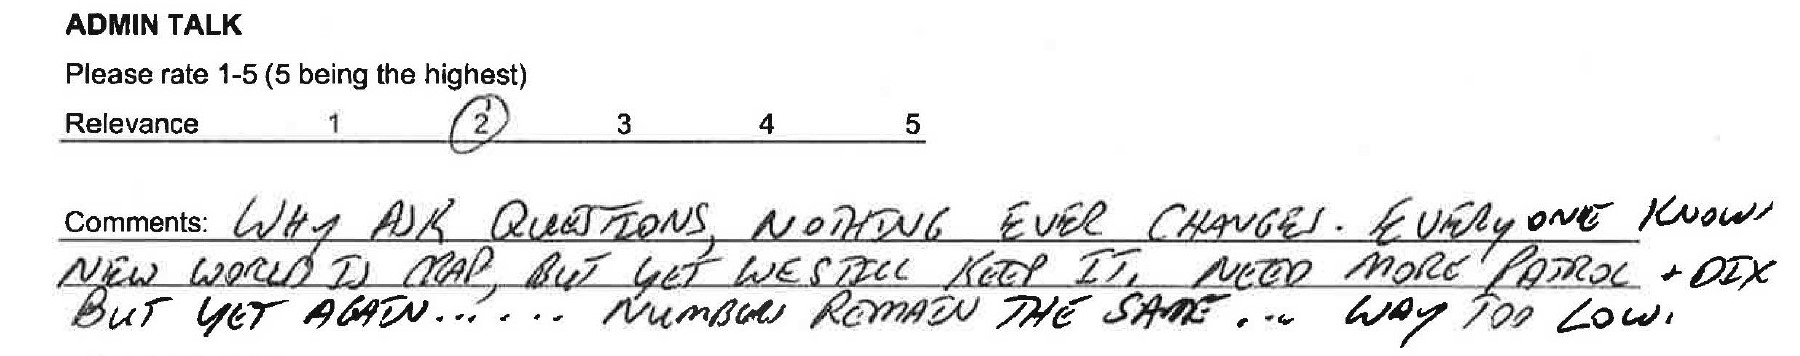 ADMIN TALK
Please rate 1-5 (5 being the highest)
Relevance 1 2 3 4 5
Comments: WHY ASK QUESTIONS, NOTHING EVER CHANGES. EVERYONE KNOWS
NEW WORLD IS CRAP, BUT YET WE STILL KEEP IT. NEED MORE PATROL + DIX
BUT YET AGAIN...... NUMBERS REMAIN THE SAME... WAY TOO LOW.